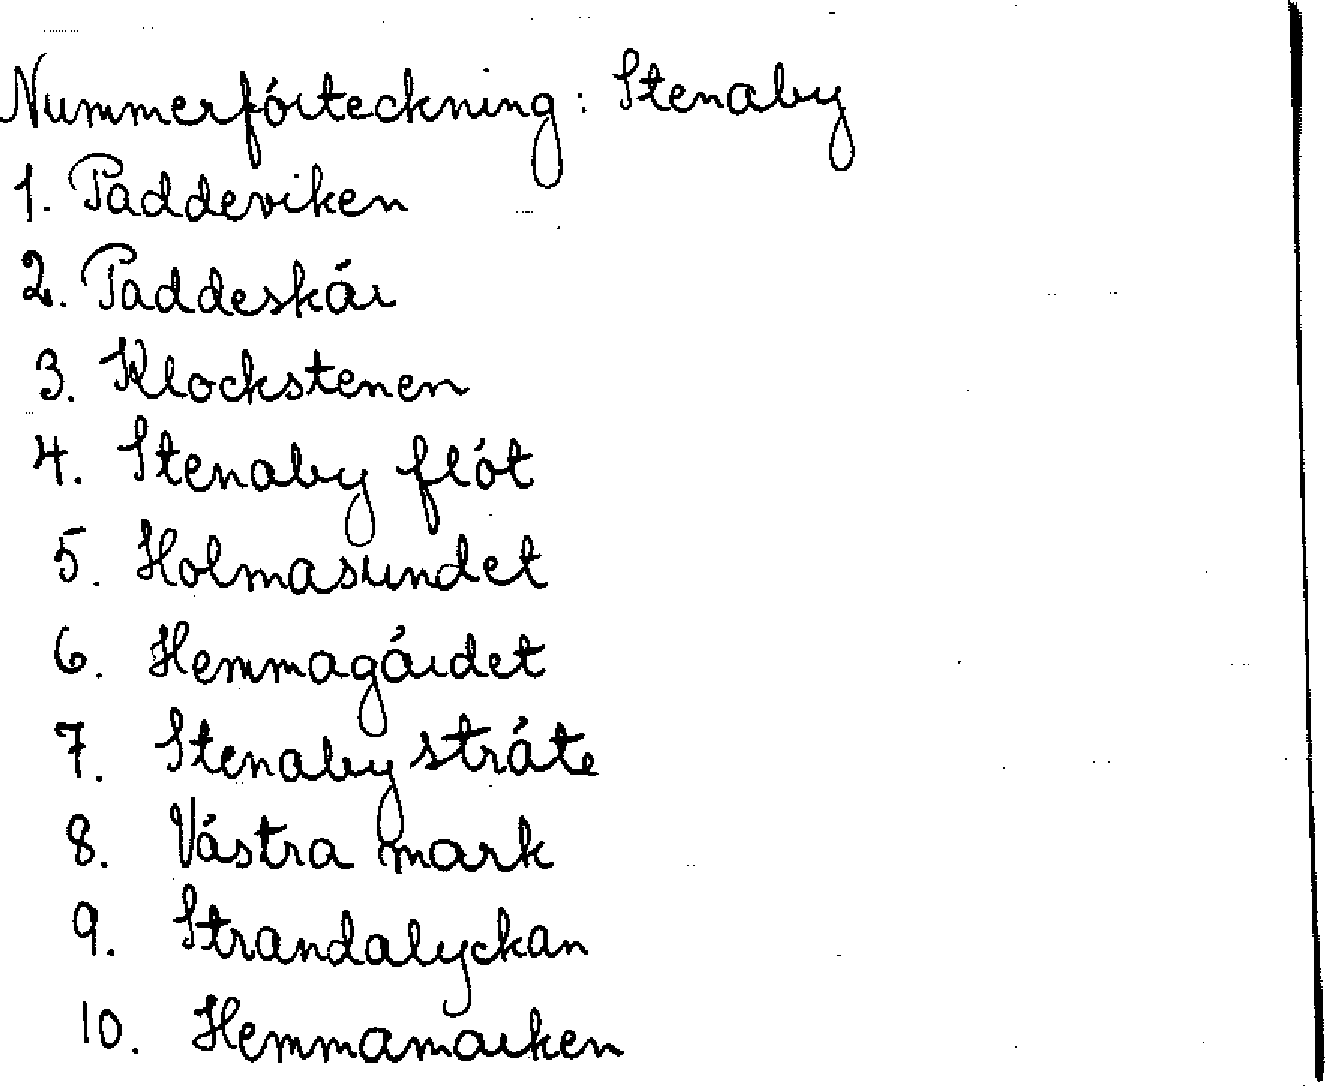 Nummerförteckning: Stenaby
1. Paddeviken
2. Paddeskär
3. Klockstenen
4. Stenaby flöt
5. Holmasundet
6. Hemmagärdet
7. Stenaby stråte
8. Västra mark
9. Strandalyckan
10. Hemmamarken